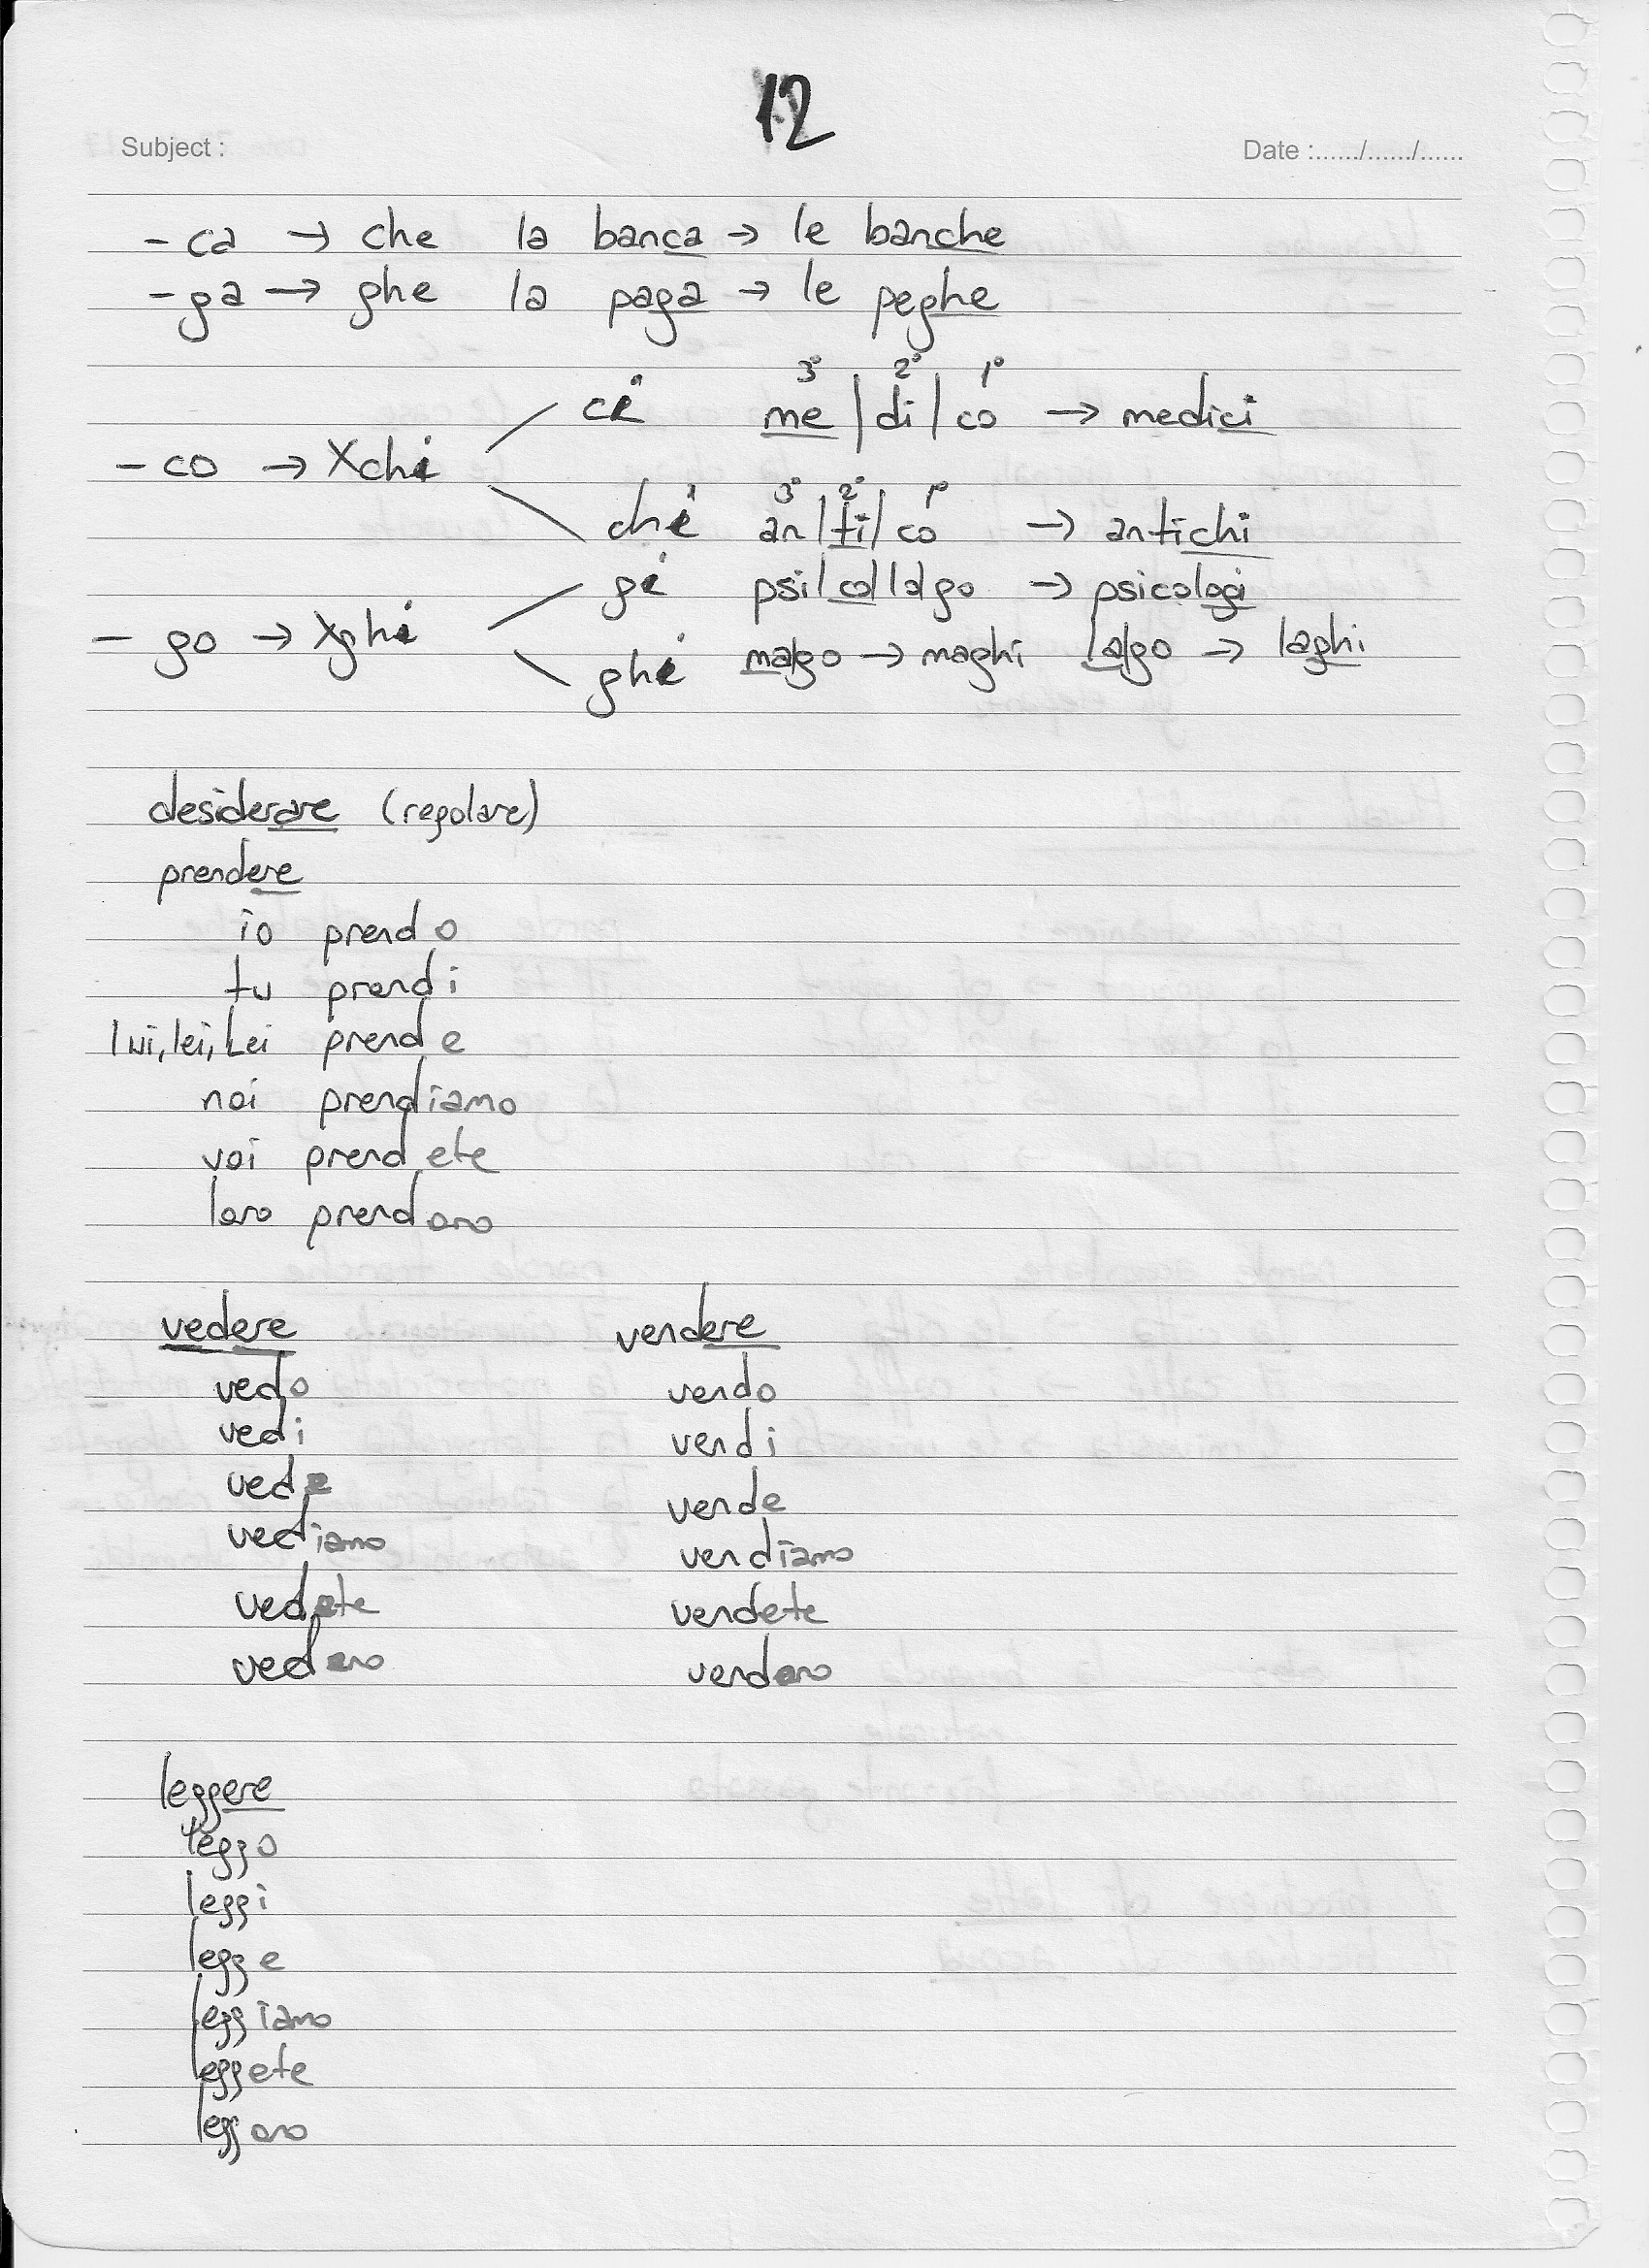 12
Subject :
Date :....../....../......
- ca → che la banca → le banche
- ga → ghe la paga → le peghe
3° 2° 1°
ci me | di | co → medici
- co → Xchi
3° 2° 1°
chi an | ti | co → antichi
gi psi|co|lo|go → psicologi
- go → Xghi
ghi ma|go → maghi la|go → laghi
desiderare (regolare)
prendere
io prendo
tu prendi
lui, lei, Lei prende
noi prendiamo
voi prendete
loro prendono
vedere vendere
vedo vendo
vedi vendi
vede vende
vediamo vendiamo
vedete vendete
vedono vendono
leggere
leggo
leggi
legge
leggiamo
leggete
leggono